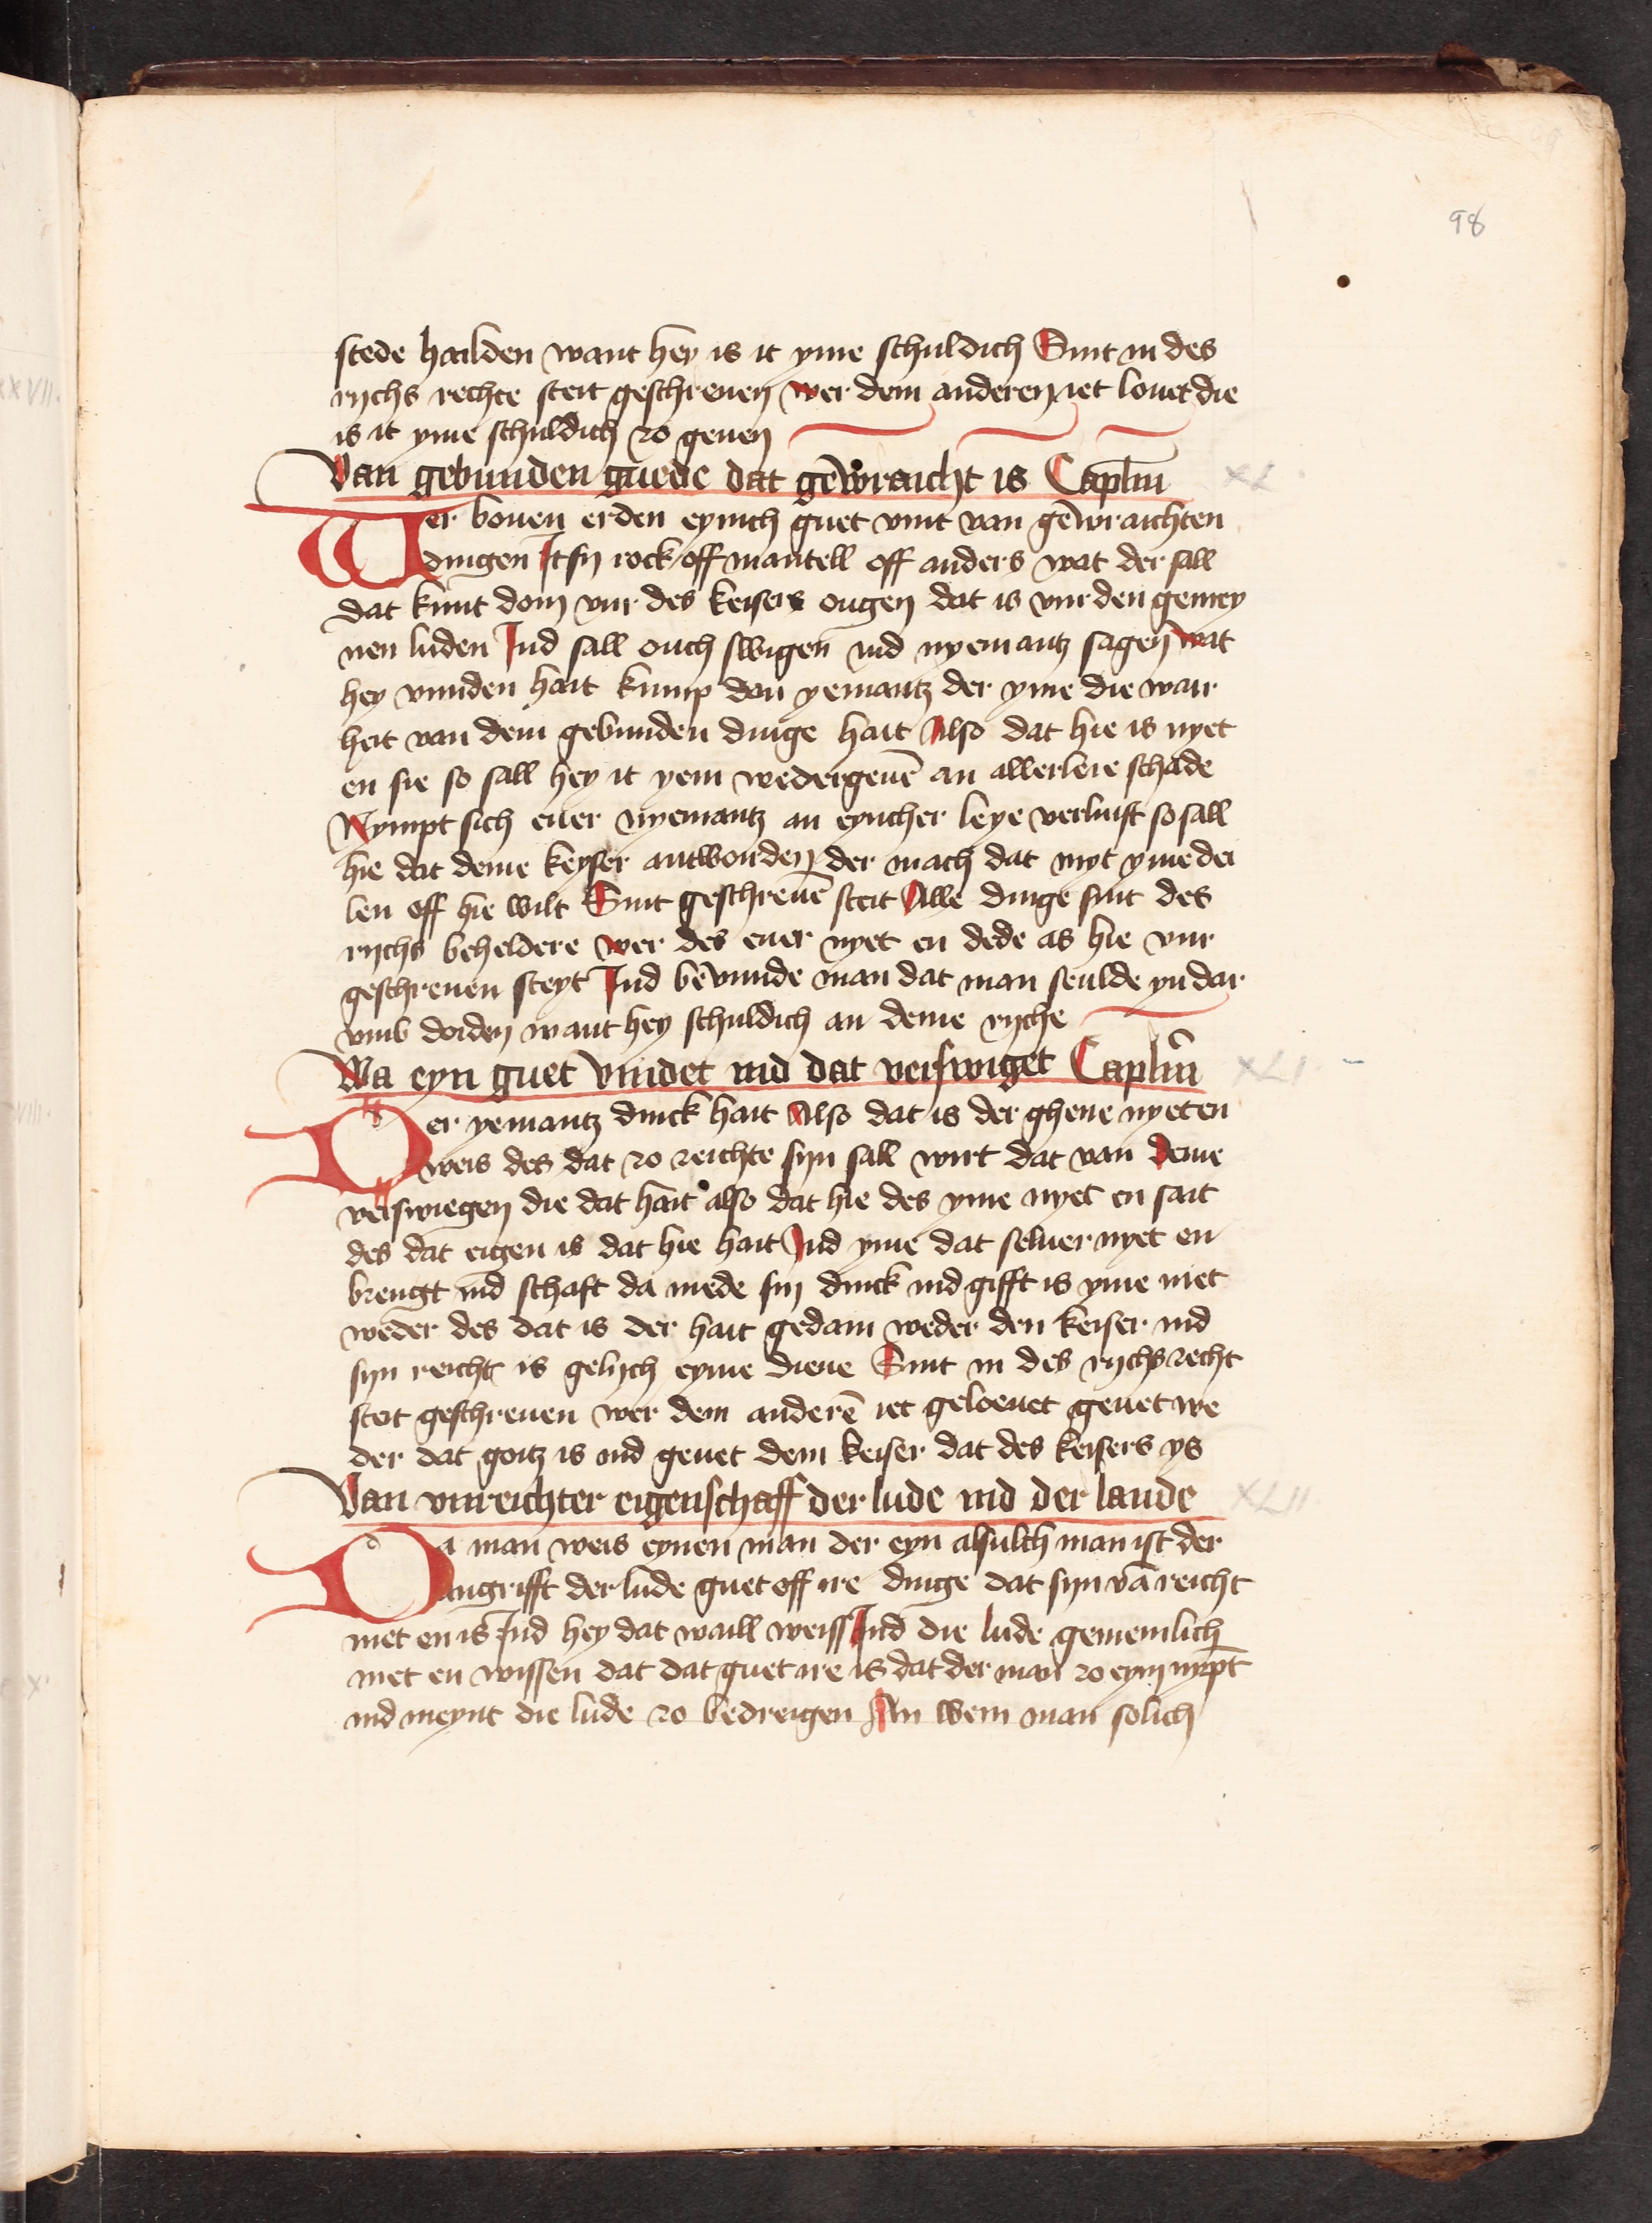 98
stede hailden want hey is it yme schuldich Sint in des
rychs rechte steit geschreuen wer dem anderen iet louet die
is it yme schuldich zo geuen
Van gebunden guede dat gewraicht is Caplm̄ XL
Wer bouen erden eynich guet vint van gewraichten
dingen It sy rock off mantell off anders wat der sall
dat kunt doin vur des keisers ougen dat is vur den gemey
nen luden Ind sall ouch swigen ind nyemantz sagen wat
hey vunden hait kump dan yemantz der yme die wair
heit van dem gebunden dinge hait Also dat hie is nyet
en sie so sall hey it yem wedergeuē an allerleie schade
Nympt sich euer nyemantz an eyncher leye verluist so sall
hie dat deme keyser antworden der mach dat myt yme dei
len off hie wilt Sint geschreuē steit Alle dinge sint des
rychs beheldere wer des euer nyet en dede as hie vur
geschreuen steyt Ind bevunde man dat man seulde yn dar
vmb doiden want hey schuldich an deme ryche
Wa eyn guet vindet ind dat verswiget Caplm̄ XLI
Der yemantz dinck hait Also dat is der ghene nyet en
weis des dat zo reichte syn sall wirt dat van deme
verswiegen die dat hait also dat hie des yme nyet en sait
des dat eigen is dat hie hait Ind yme dat seluer nyet en
brengt ind schaft da mede sin dinck ind gifft is yme niet
weder des dat is der hait gedain weder den keiser ind
syn reicht is gelych eyme dieue Sint in des rychs recht
steit geschreuen wer dem anderē iet geloeuet geuet we
der dat goitz is ind geuet dem keiser dat des keisers ys
Van vnreichter eigenschaff der lude ind der lande XLII
Da man weis eynen man der eyn alsulch man ist der
angrifft der lude guet off ire dinge dat syn vā reicht
niet en is Ind hey dat waill weiss Ind die lude gemeinlich
niet en wissen dat dat guet ire is dat der man zo eym nympt
ind meynt die lude zo bedreigen An wem man solich